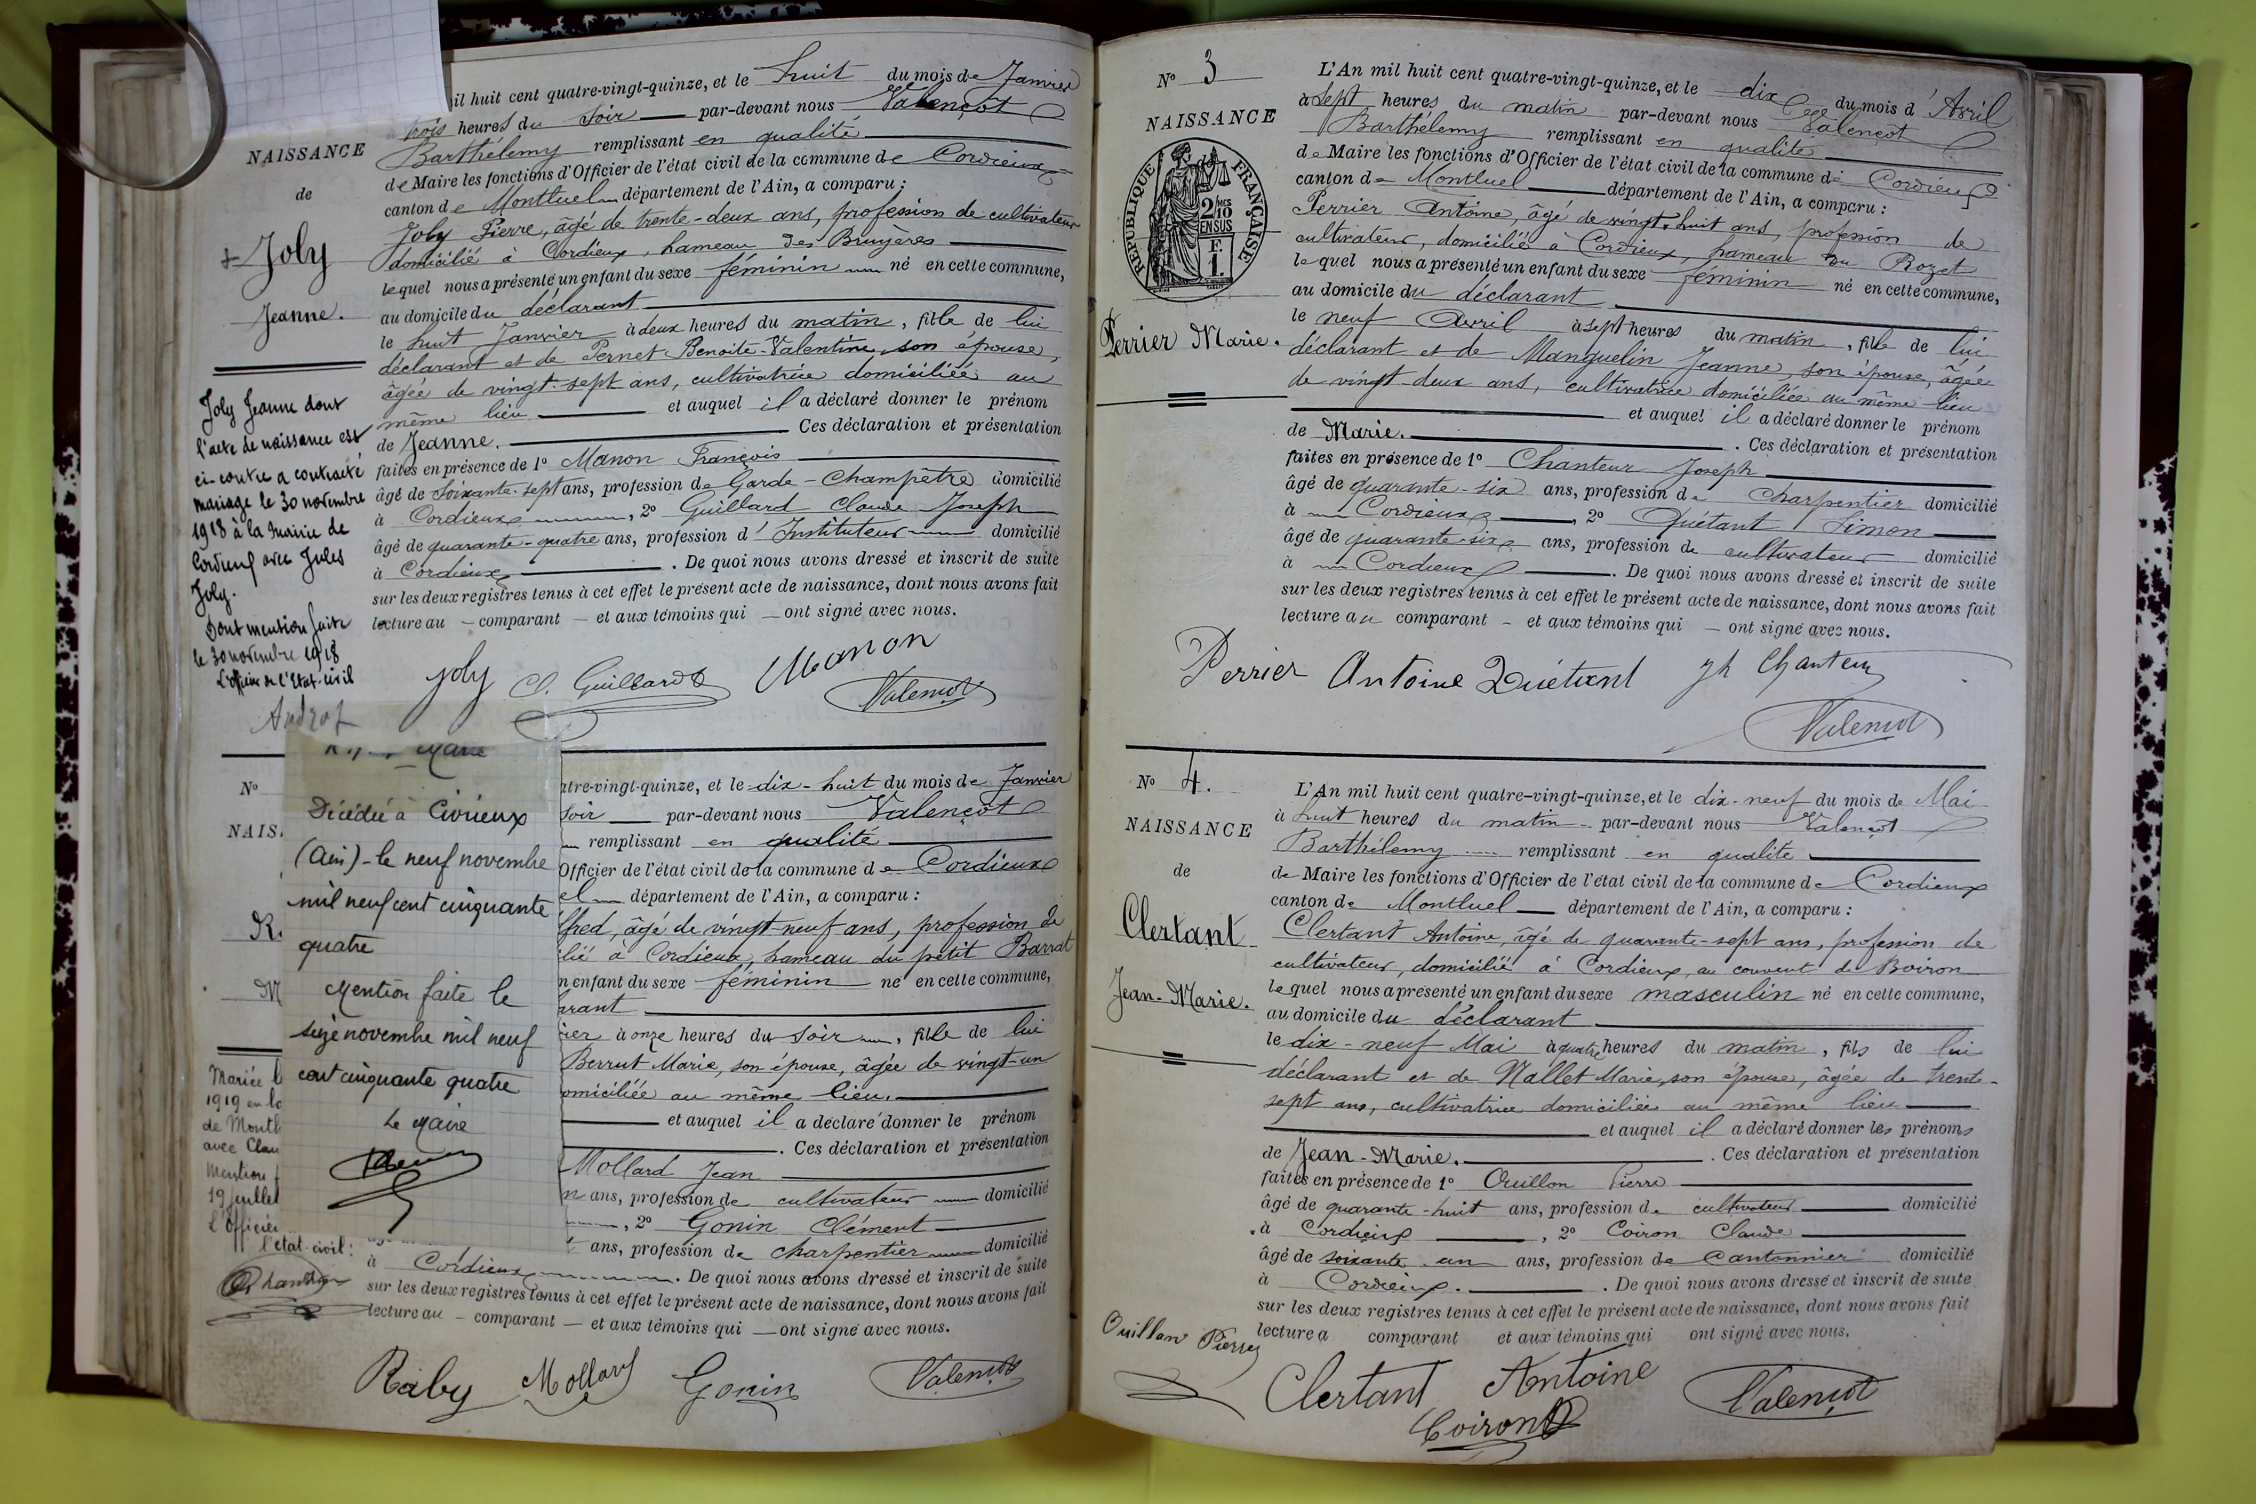 il huit cent quatre-vingt-quinze, et le huit du mois de Janvier
trois heures du soir par-devant nous Valençot
Barthélemy remplissant en qualité
de Maire les fonctions d'Officier de l'état civil de la commune de Cordieux
canton de Montluel département de l'Ain, a comparu :
Joly Pierre, âgé de trente-deux ans, profession de cultivateur
domicilié à Cordieux, hameau des Bruyères
lequel nous a présenté un enfant du sexe féminin né en cette commune,
au domicile du déclarant
le huit Janvier à deux heures du matin, fille de lui
déclarant et de Pernet Benoîte-Valentine, son épouse,
âgée de vingt-sept ans, cultivatrice domiciliée au
même lieu et auquel il a déclaré donner le prénom
de Jeanne. Ces déclaration et présentation
faites en présence de 1º Manon François
âgé de soixante-sept ans, profession de Garde-Champêtre domicilié
à Cordieux, 2º Guillard Claude Joseph
âgé de quarante-quatre ans, profession d'Instituteur domicilié
à Cordieux. De quoi nous avons dressé et inscrit de suite
sur les deux registres tenus à cet effet le présent acte de naissance, dont nous avons fait
lecture au comparant et aux témoins qui ont signé avec nous.
Joly Cl. Guillard Manon
Valençot
NAISSANCE
de
Joly
Jeanne.
Joly Jeanne dont
l'acte de naissance est
ci-contre a contracté
mariage le 30 novembre
1918 à la Mairie de
Cordieux avec Jules
Joly.
Dont mention faite
le 30 novembre 1918
L'officier de l'Etat-civil
Nº
NAIS
R
M
Marie
Décédée à Civrieux
(Ain) - le neuf novembre
mil neuf cent cinquante
quatre
Mention faite le
seize novembre mil neuf
cent cinquante quatre
Le Maire
Mariée l
1919 en la
de Montl
avec Clau
Mention f
19 juillet
L'Officier
l'état-civil :
atre-vingt-quinze, et le dix-huit du mois de Janvier
soir par-devant nous Valençot
remplissant en qualité
Officier de l'état civil de la commune de Cordieux
el département de l'Ain, a comparu :
lfred, âgé de vingt-neuf ans, profession de
lié à Cordieux, hameau du petit Barrat
n enfant du sexe féminin né en cette commune,
arant
ier à onze heures du soir, fille de lui
Berrut Marie, son épouse, âgée de vingt-un
omiciliée au même lieu.
et auquel il a déclaré donner le prénom
. Ces déclaration et présentation
Mollard Jean
n ans, profession de cultivateur domicilié
, 2º Gonin Clément
ans, profession de charpentier domicilié
à Cordieux. De quoi nous avons dressé et inscrit de suite
sur les deux registres tenus à cet effet le présent acte de naissance, dont nous avons fait
lecture au comparant et aux témoins qui ont signé avec nous.
Raby Mollard Gonin Valençot
Nº 3
NAISSANCE
RÉPUBLIQUE FRANÇAISE
2/10 MES
EN SUS
F.
1.
Perrier Marie.
L'An mil huit cent quatre-vingt-quinze, et le dix du mois d'Avril
à sept heures du matin par-devant nous Valençot
Barthélemy remplissant en qualité
de Maire les fonctions d'Officier de l'état civil de la commune de Cordieux
canton de Montluel département de l'Ain, a comparu :
Perrier Antoine, âgé de vingt-huit ans, profession de
cultivateur, domicilié à Cordieux, hameau du Rozet
lequel nous a présenté un enfant du sexe féminin né en cette commune,
au domicile du déclarant
le neuf Avril à sept heures du matin, fille de lui
déclarant et de Manguelin Jeanne, son épouse, âgée
de vingt-deux ans, cultivatrice domiciliée au même lieu
et auquel il a déclaré donner le prénom
de Marie. Ces déclaration et présentation
faites en présence de 1º Chanteur Joseph
âgé de quarante-six ans, profession de charpentier domicilié
à Cordieux, 2º Quétant Simon
âgé de quarante-six ans, profession de cultivateur domicilié
à Cordieux. De quoi nous avons dressé et inscrit de suite
sur les deux registres tenus à cet effet le présent acte de naissance, dont nous avons fait
lecture au comparant et aux témoins qui ont signé avec nous.
Perrier Antoine Quétant Jh Chanteur
Valençot
Nº 4.
NAISSANCE
de
Clertant
Jean-Marie.
L'An mil huit cent quatre-vingt-quinze, et le dix-neuf du mois de Mai
à huit heures du matin par-devant nous Valençot
Barthélemy remplissant en qualité
de Maire les fonctions d'Officier de l'état civil de la commune de Cordieux
canton de Montluel département de l'Ain, a comparu :
Clertant Antoine, âgé de quarante-sept ans, profession de
cultivateur, domicilié à Cordieux, au couvent de Boiron
lequel nous a présenté un enfant du sexe masculin né en cette commune,
au domicile du déclarant
le dix-neuf Mai à quatre heures du matin, fils de lui
déclarant et de Nallet Marie, son épouse, âgée de trente-
sept ans, cultivatrice domiciliée au même lieu
et auquel il a déclaré donner les prénoms
de Jean-Marie. Ces déclaration et présentation
faites en présence de 1º Ouillon Pierre
âgé de quarante-huit ans, profession de cultivateur domicilié
à Cordieux, 2º Coiron Claude
âgé de soixante-un ans, profession de Cantonnier domicilié
à Cordieux. De quoi nous avons dressé et inscrit de suite
sur les deux registres tenus à cet effet le présent acte de naissance, dont nous avons fait
lecture a comparant et aux témoins qui ont signé avec nous.
Ouillon Pierre
Clertant Antoine Valençot
Coiron